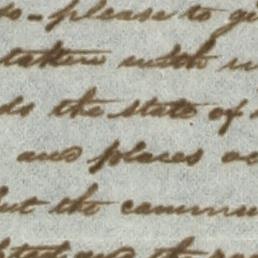 so - please to gi
taken with
ds the state of
and places oc
but the commun
the